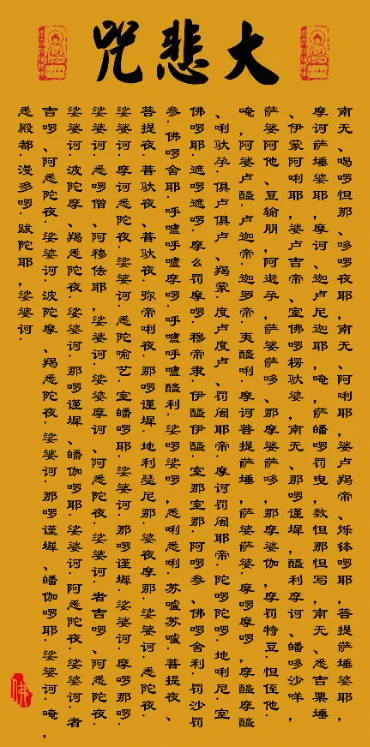 大悲咒
南无、喝啰怛那、哆啰夜耶，南无、阿唎耶，婆卢羯帝、烁钵啰耶，菩提萨埵婆耶，
摩诃萨埵婆耶，摩诃、迦卢尼迦耶，唵，萨皤啰罚曳，数怛那怛写，南无、悉吉栗埵
、伊蒙阿唎耶，婆卢吉帝、室佛啰楞驮婆，南无、那啰谨墀，醯利摩诃、皤哆沙咩，
萨婆阿他、豆输朋，阿逝孕，萨婆萨哆、那摩婆萨哆，那摩婆伽，摩罚特豆·怛侄他·
唵，阿婆卢醯·卢迦帝·迦罗帝·夷醯唎·摩诃菩提萨埵，萨婆萨婆·摩啰摩啰，摩醯摩醯
、唎驮孕·俱卢俱卢、羯蒙·度卢度卢、罚阇耶帝·摩诃罚阇耶帝·陀啰陀啰·地唎尼·室
佛啰耶·遮啰遮啰·摩么罚摩啰·穆帝隶·伊醯伊醯·室那室那·阿啰参、佛啰舍利·罚沙罚
参·佛啰舍耶·呼嚧呼嚧摩啰·呼嚧呼嚧醯利·娑啰娑啰，悉唎悉唎·苏嚧苏嚧·菩提夜、
菩提夜·菩驮夜、菩驮夜·弥帝唎夜·那啰谨墀·地利瑟尼那·婆夜摩那·娑婆诃·悉陀夜·
娑婆诃·摩诃悉陀夜·娑婆诃·悉陀喻艺·室皤啰耶·娑婆诃·那啰谨墀·娑婆诃·摩啰那啰·
娑婆诃·悉啰僧、阿穆佉耶，娑婆诃·娑婆摩诃、阿悉陀夜·娑婆诃·者吉啰、阿悉陀夜·
娑婆诃·波陀摩、羯悉陀夜·娑婆诃·那啰谨墀、皤伽啰耶·娑婆诃·阿悉陀夜·娑婆诃·者
吉啰、阿悉陀夜·娑婆诃·波陀摩、羯悉陀夜·娑婆诃·那啰谨墀、皤伽啰耶·娑婆诃·唵，
悉殿都·漫多啰·跋陀耶，娑婆诃·
佛